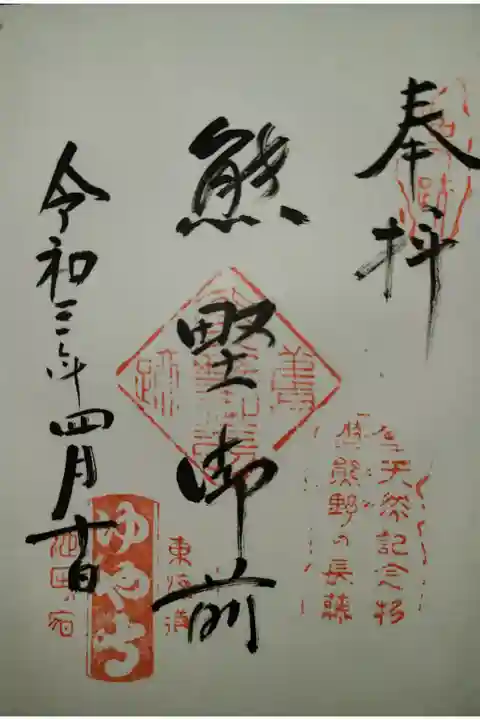 奉拝
熊野御前
天然記念物
熊野の長藤
令和三年四月廿日
東海道
ゆや寺
池田宿